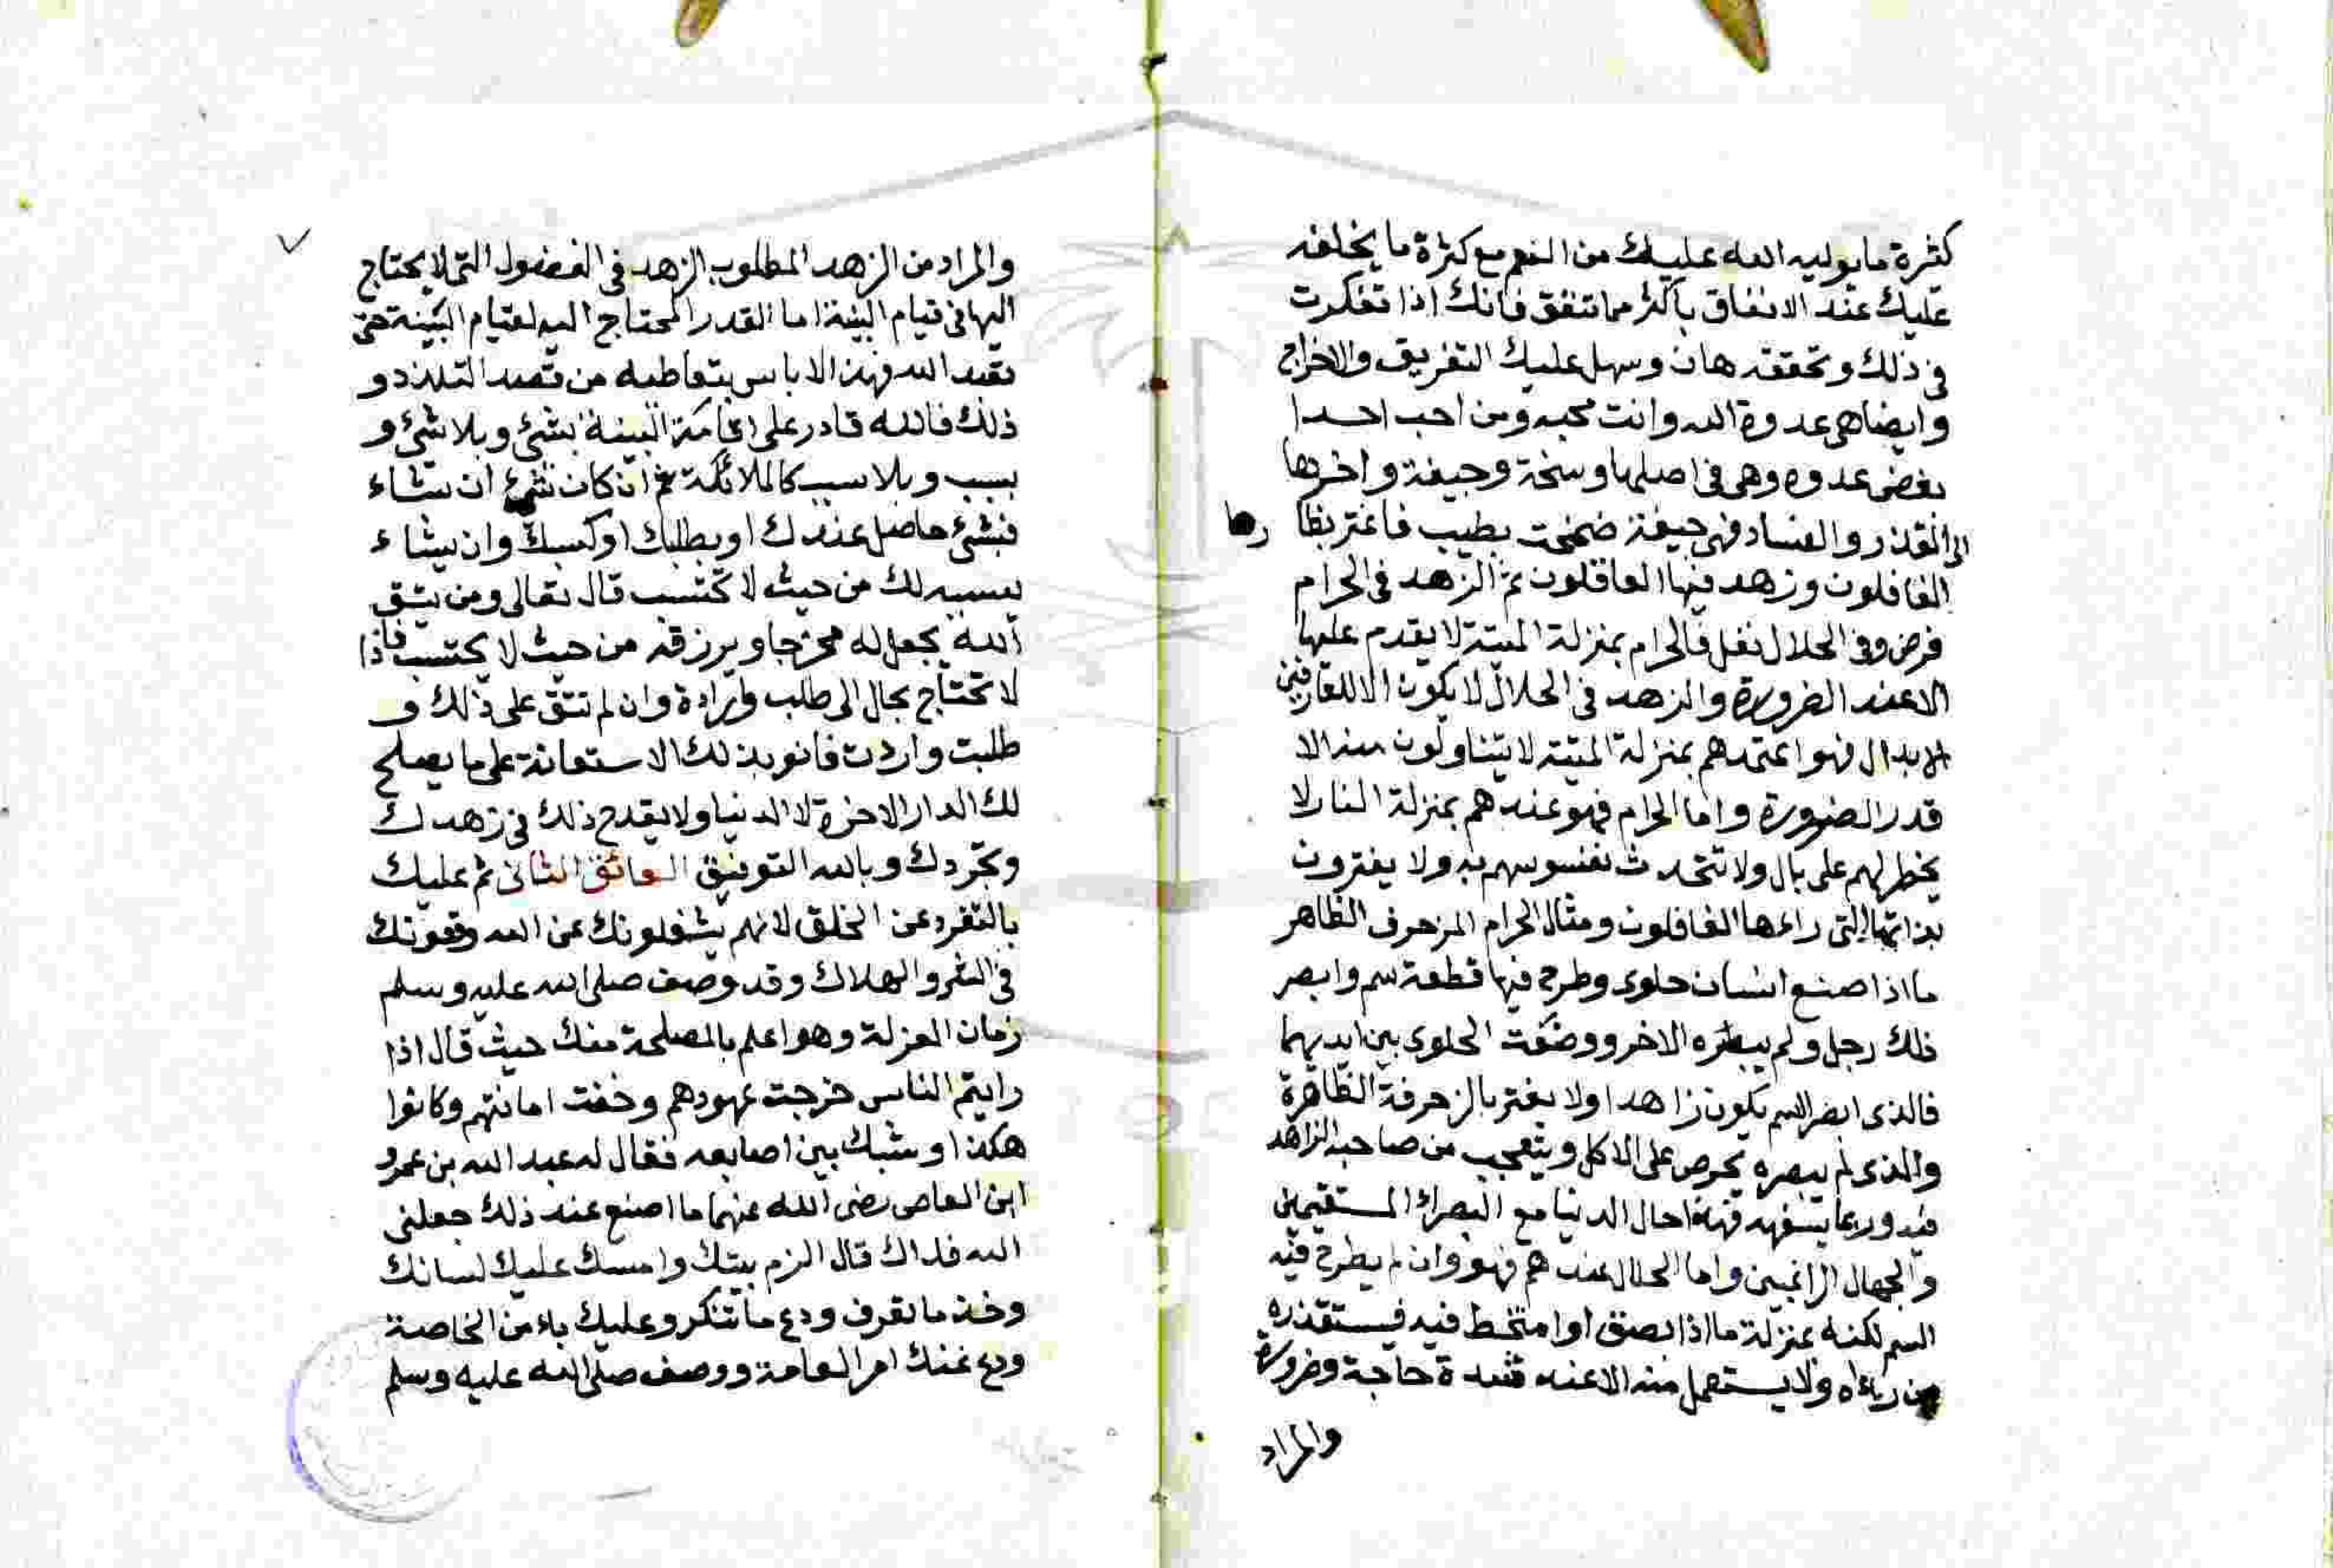 كثرة ما يوليه الله عليك من النعم مع كثرة ما يخلفه
عليك عند الانفاق باكثر مما تنفق فانك اذا تفكرت
في ذلك وتحققته هان وسهل عليك التفريق والاخراج
وايضا هي عدوة الله وانت محبه ومن احب احدا
بغض عدوه وهي في اصلها وسخة وجيفة واخرها
الى القذر والفساد فهي جيفة ضمخت بطيب فاغتر بظا رها
الغافلون وزهد فيها العاقلون ثم الزهد في الحرام
فرض وفي الحلال نفل فالحرام بمنزلة الميتة لا يقدم عليها
الا عند الضرورة والزهد في الحلال لا يكون الا للعارفين
الابدال فهو عندهم بمنزلة الميتة لا يتناولون منه الا
قدر الضرورة واما الحرام فهو عندهم بمنزلة النار لا
يخطر لهم على بال ولا تتحدث نفسوسهم به ولا يغترون
بذاتها التي راءها الغافلون ومثال الحرام المزحرف الظاهر
ما اذا صنع انسان حلوى وطرح فيها قطعة سم وابصر
ذلك رجل ولم يبصره الاخر ووضعت الحلوى بين ايديهما
فالذي ابصر السم يكون زاهدا ولا يغتر بالزحرفة الظاهرة
والذي لم يبصره يحرص على الاكل ويتعجب من صاحبه الزاهد
فيه وربما يتسفهه فهذا حال الدنيا مع البصراء المستقيمين
والجهال الراغبين واما الحلال عندهم فهو وان لم يطرح فيه
السم لكنه بمنزلة ما اذا بصق او امتخط فيه فيستقذره
من راءه ولا يستعمل منه الا عند شدة حاجة وضرورة
والمراد
والمراد من الزهد المطلوب الزهد في الفضول التي لا يحتاج
اليها في قيام البنية اما القدر المحتاج اليه لقيام البنية حتى
تعبد الله فهذا لا باس بتعاطيه من قصد التلذذ و
ذلك فالله قادر على اقامة البنية بشئ وبلا شئ و
بسبب وبلا سبب كالملائكة ثم ان كان شئ ان شاء
فبشئ حاصل عندك او بطلبك او كسبك وان يشاء
يسببه لك من حيث لا تحتسب قال تعالى ومن يتق
الله يجعل له مخرجا ويرزقه من حيث لا يحتسب فاذا
لا تحتاج بحال الى طلب وارادة وان لم تتق على ذلك و
طلبت واردت فانو بذلك الاستعانة على ما يصلح
لك الدار الاخرة لا الدنيا ولا يقدح ذلك في زهدك
وتجردك وبالله التوفيق العائق الثاني ثم عليك
بالتفرد عن الخلق لانهم يشغلونك عن الله
في الشر والهلاك وقد وصف صلى الله عليه وسلم
زمان العزلة وهو اعلم بالمصلحة منك حيث قال اذا
رايتم الناس خرجت عهودهم وخفت امانتهم وكانوا
هكذا وشبك بين اصابعه فقال له عبد الله بن عمرو
ابن العاص رضي الله عنهما ما اصنع عند ذلك جعلني
الله فداك قال الزم بيتك وامسك عليك لسانك
وخذ ما تعرف ودع ما تنكر وعليك بامر الخاصة
ودع عنك امر العامة ووصف صلى الله عليه وسلم